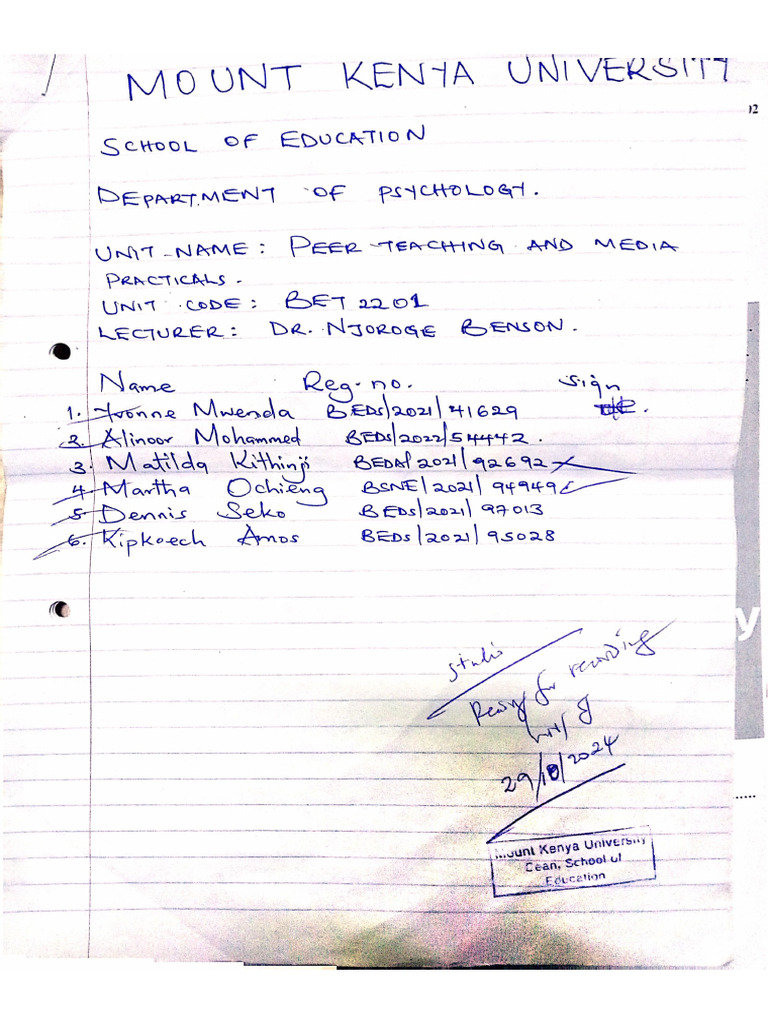 MOUNT KENYA UNIVERSITY
02
SCHOOL OF EDUCATION
DEPARTMENT OF PSYCHOLOGY.
UNIT NAME: PEER TEACHING AND MEDIA
PRACTICALS.
UNIT CODE: BET 2201
LECTURER: DR. NJOROGE BENSON.
Name Reg. no. Sign
1. Yvonne Mwenda BEDS/2021/41629
2. Alinoor Mohammed BEDS/2022/54442.
3. Matilda Kithinji BEDA/2021/92692
4. Martha Ochieng BSNE/2021/94949
5. Dennis Seko BEDS/2021/97013
6. Kipkoech Amos BEDS/2021/95028
studio
Ready for recording
29/10/2024
y
Mount Kenya University
Dean, School of
Education